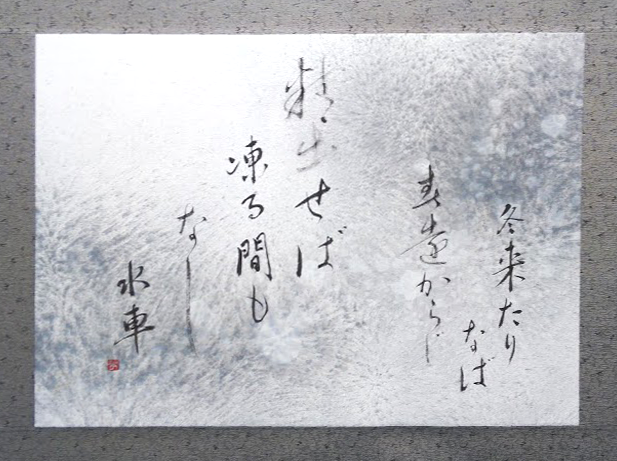 冬来たり
なば
春遠からじ
精出せば
凍る間も
なし
水車